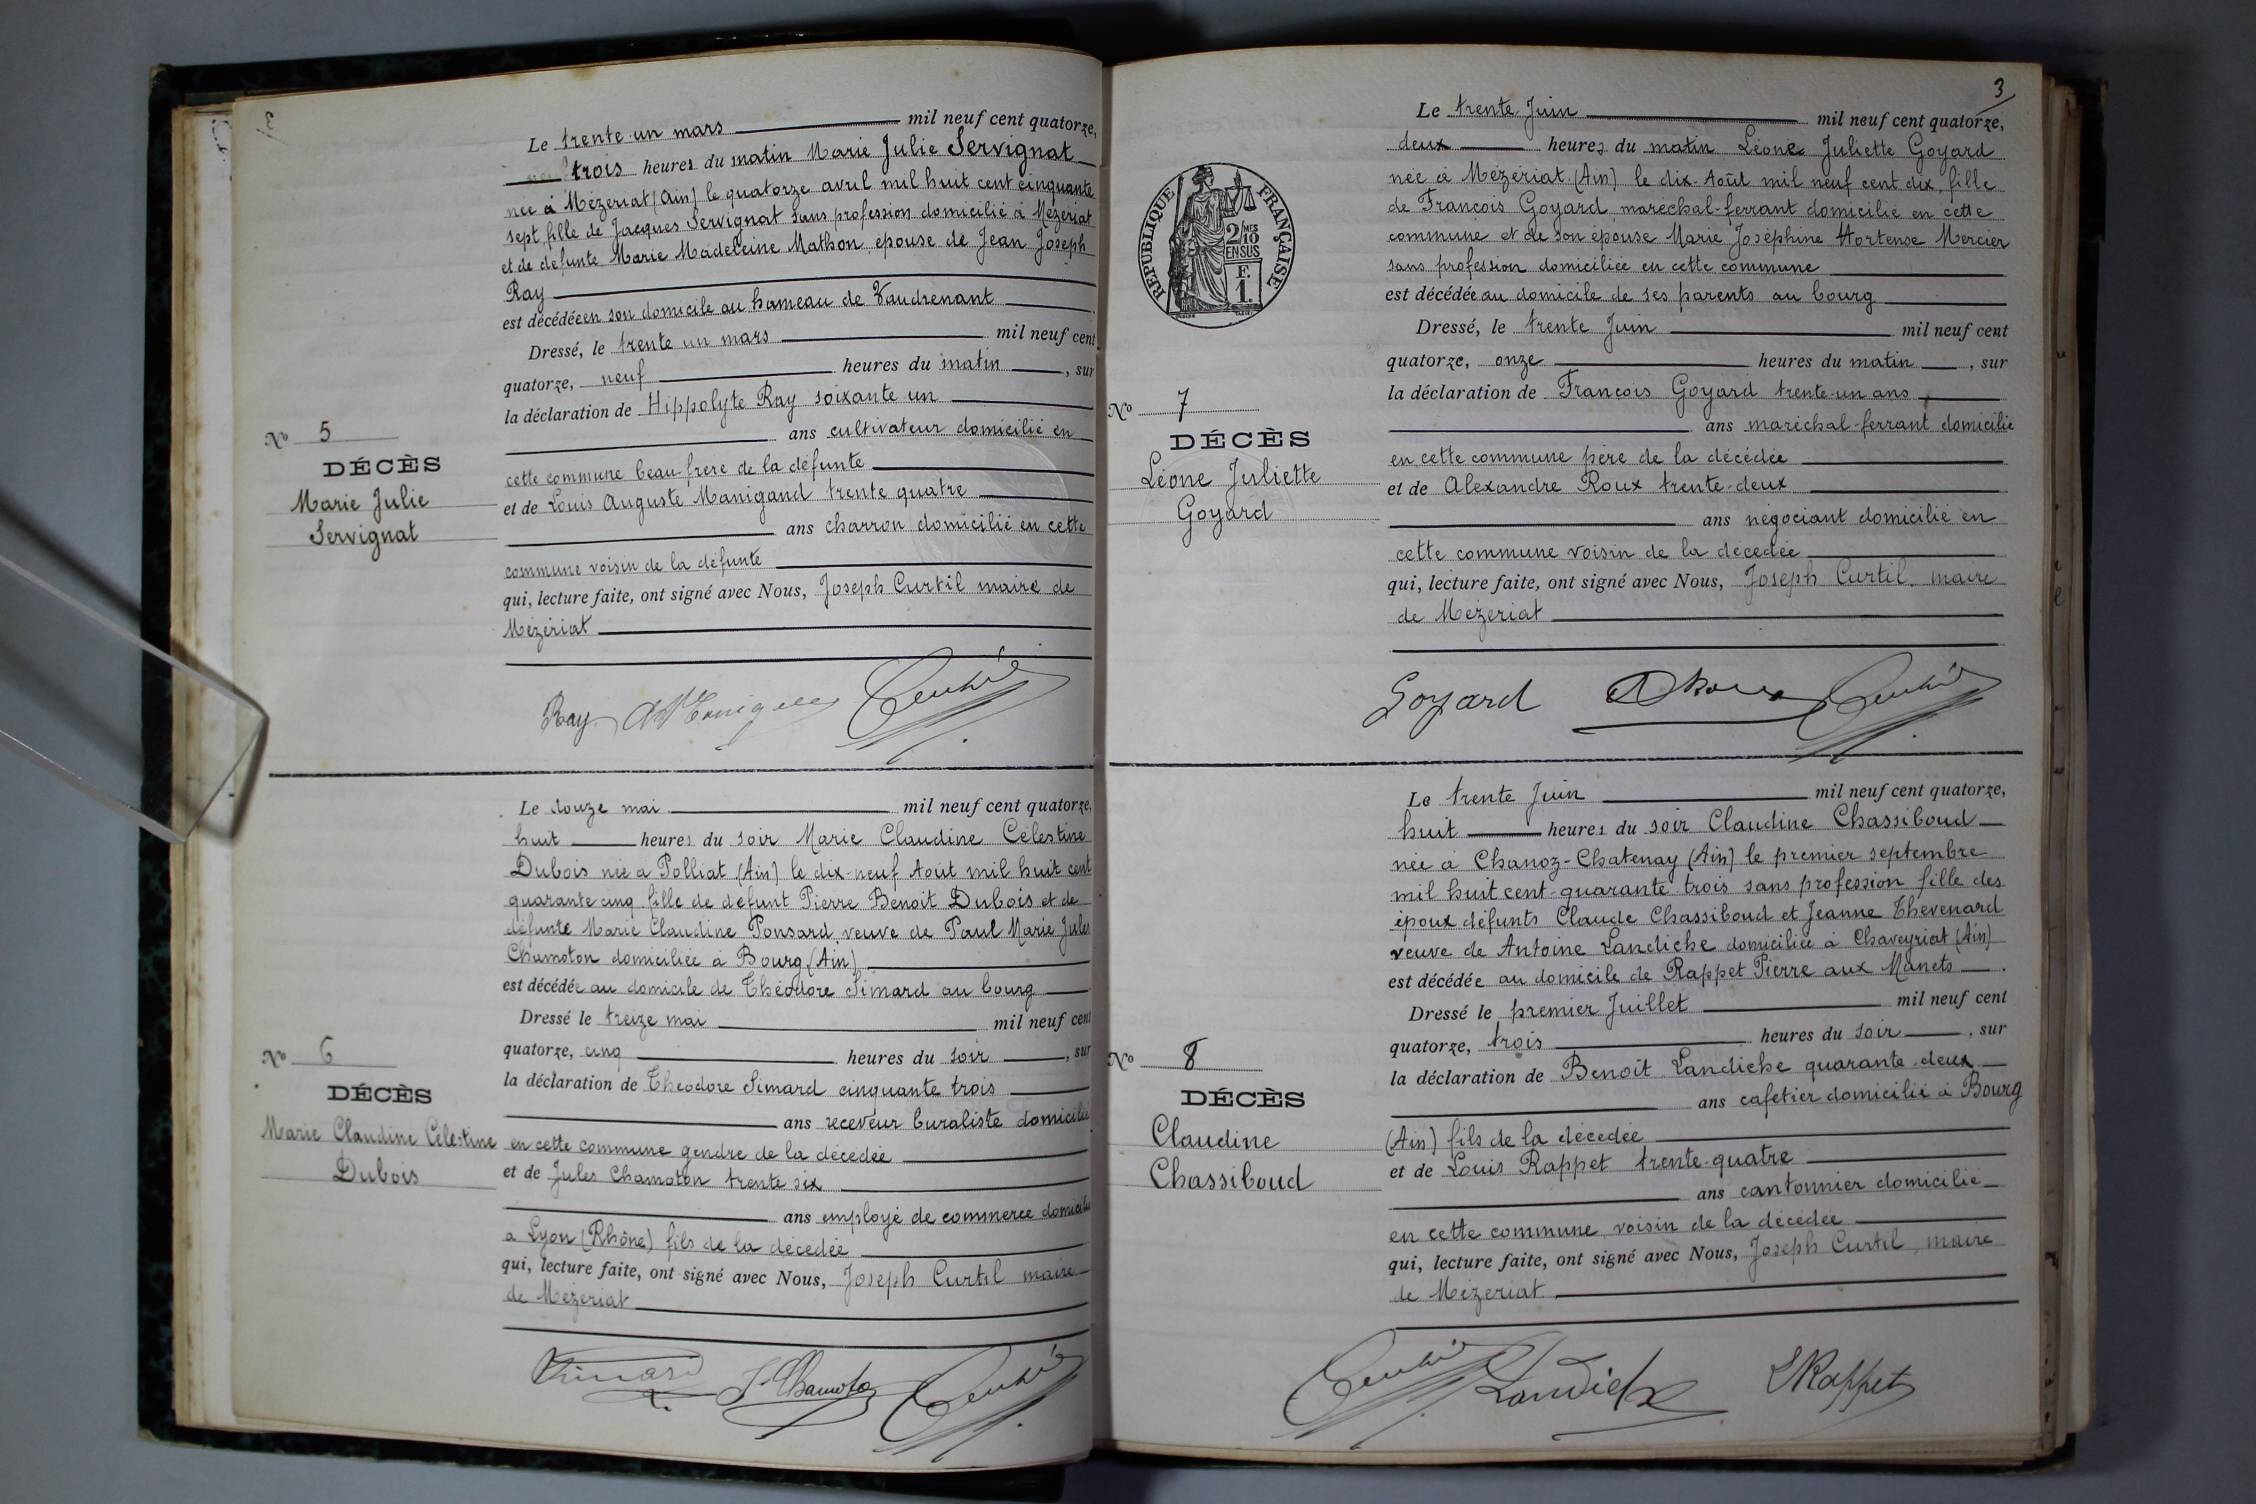 2
Le trente un mars mil neuf cent quatorze,
trois heures du matin Marie Julie Servignat
née à Mézériat (Ain) le quatorze avril mil huit cent cinquante
sept fille de Jacques Servignat sans profession domicilié à Mézériat
et de défunte Marie Madeleine Mathon, épouse de Jean Joseph
Ray
est décédée en son domicile au hameau de Vaudrenant
Dressé, le trente un mars mil neuf cent
quatorze, neuf heures du matin, sur
la déclaration de Hippolyte Ray soixante un
ans cultivateur domicilié en
cette commune beau-frère de la défunte
et de Louis Auguste Manigand trente quatre
ans charron domicilié en cette
commune voisin de la défunte
qui, lecture faite, ont signé avec Nous, Joseph Curtil maire de
Mézériat
No 5
DÉCÈS
Marie Julie
Servignat
Ray
Le douze mai mil neuf cent quatorze,
huit heures du soir Marie Claudine Célestine
Dubois née à Polliat (Ain) le dix-neuf Août mil huit cent
quarante cinq fille de défunt Pierre Benoit Dubois et de
défunte Marie Claudine Ponsard, veuve de Paul Marie Jules
Chamoton domiciliée à Bourg (Ain)
est décédée au domicile de Théodore Simard au bourg
Dressé le treize mai mil neuf cent
quatorze, cinq heures du soir, sur
la déclaration de Théodore Simard cinquante trois
ans receveur buraliste domicilié
en cette commune gendre de la décédée
et de Jules Chamoton trente six
ans employé de commerce domicilié
à Lyon (Rhône) fils de la décédée
qui, lecture faite, ont signé avec Nous, Joseph Curtil maire
de Mézériat
No 6
DÉCÈS
Marie Claudine Célestine
Dubois
Simard J. Chamoton
3
Le trente Juin mil neuf cent quatorze,
deux heures du matin Léone Juliette Goyard
née à Mézériat (Ain) le dix Août mil neuf cent dix, fille
de François Goyard maréchal-ferrant domicilié en cette
commune et de son épouse Marie Joséphine Hortense Mercier
sans profession domiciliée en cette commune
est décédée au domicile de ses parents au bourg
Dressé, le trente Juin mil neuf cent
quatorze, onze heures du matin, sur
la déclaration de François Goyard trente-un ans
ans maréchal-ferrant domicilié
en cette commune père de la décédée
et de Alexandre Roux trente-deux
ans négociant domicilié en
cette commune voisin de la décédée
qui, lecture faite, ont signé avec Nous, Joseph Curtil, maire
de Mézériat
RÉPUBLIQUE FRANÇAISE
2/10 MES
EN SUS
F.
1.
No 7
DÉCÈS
Léone Juliette
Goyard
Goyard
Le trente Juin mil neuf cent quatorze,
huit heures du soir Claudine Chassiboud
née à Chanoz-Chatenay (Ain) le premier septembre
mil huit cent quarante trois sans profession fille des
époux défunts Claude Chassiboud et Jeanne Thevenard
veuve de Antoine Landiche domiciliée à Chaveyriat (Ain)
est décédée au domicile de Rappet Pierre aux Manets
Dressé le premier Juillet mil neuf cent
quatorze, trois heures du soir, sur
la déclaration de Benoît Landiche quarante-deux
ans cafetier domicilié à Bourg
(Ain) fils de la décédée
et de Louis Rappet trente-quatre
ans cantonnier domicilié
en cette commune voisin de la décédée
qui, lecture faite, ont signé avec Nous, Joseph Curtil, maire
de Mézériat
No 8
DÉCÈS
Claudine
Chassiboud
Landiche L Rappet